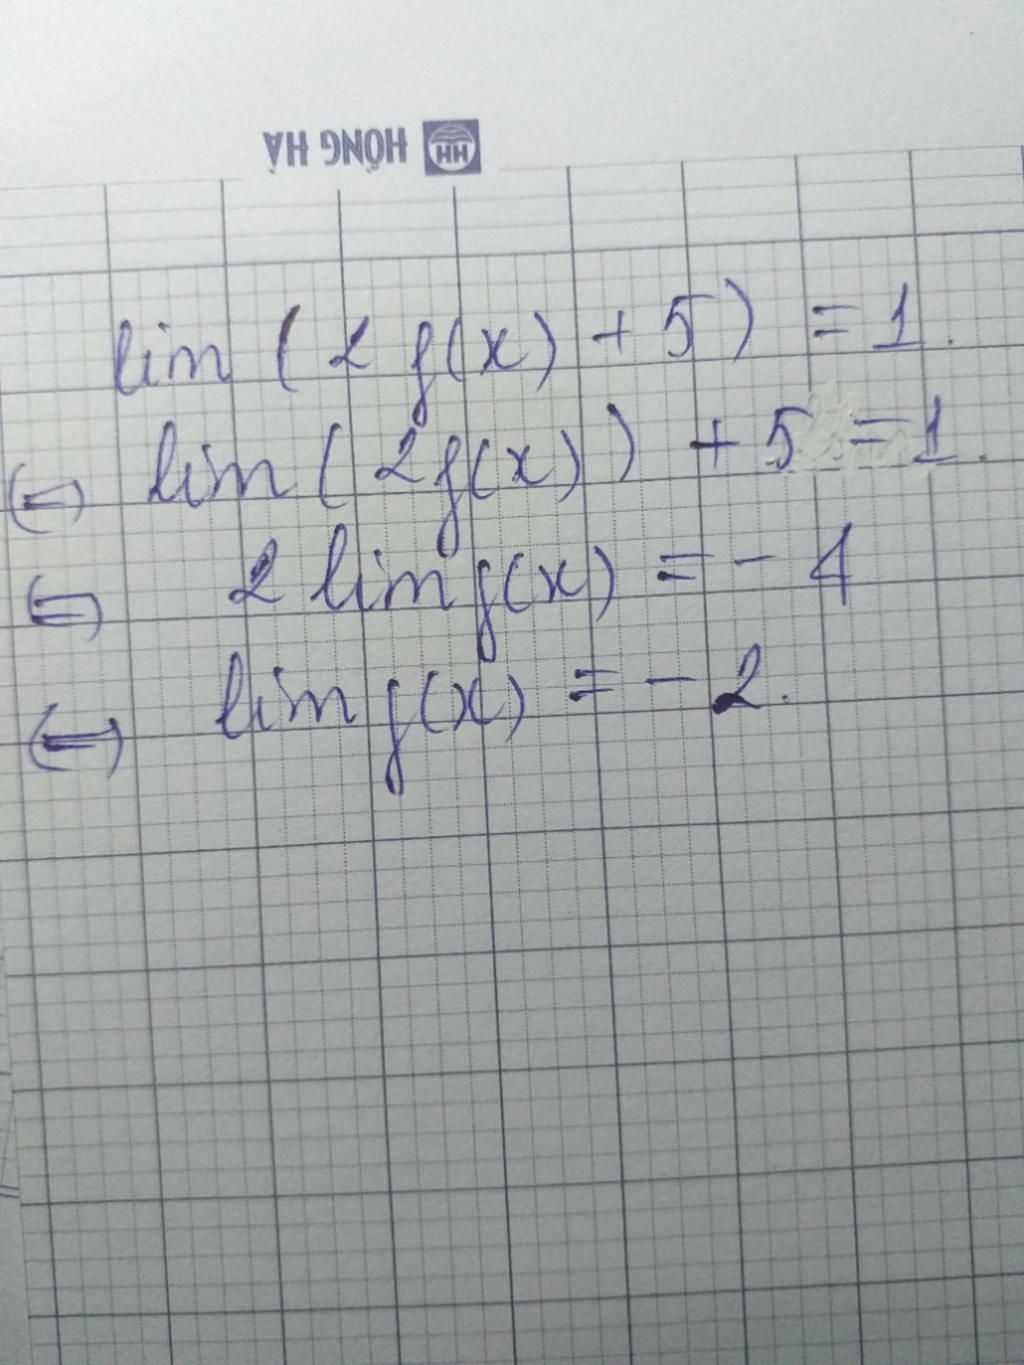 HỒNG HÀ HH
lim (2 f(x) + 5) = 1.
⇔ lim (2f(x)) + 5 = 1.
⇔ 2 lim f(x) = - 4
⇔ lim f(x) = - 2.